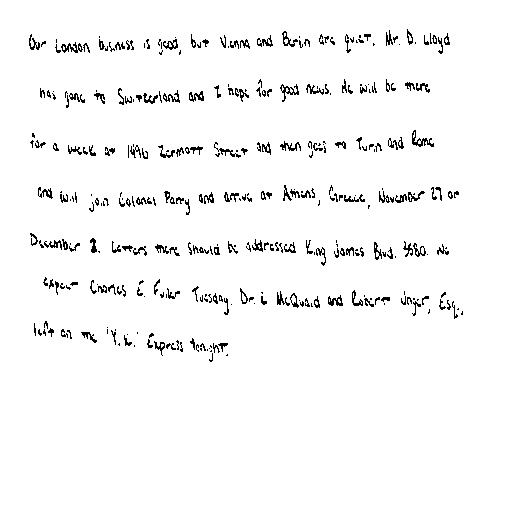 Our London business is good, but Vienna and Berlin are quiet. Mr. D. Lloyd
has gone to Switzerland and I hope for good news. He will be there
for a week at 1496 Zermott Street and then goes to Turin and Rome
and will join Colonel Parry and arrive at Athens, Greece, November 27 or
December 2. Letters there should be addressed King James Blvd. 3580. We
expect Charles E. Fuller Tuesday. Dr. L McQuaid and Robert Unger, Esq.,
left on the 'Y.X.' Express tonight.